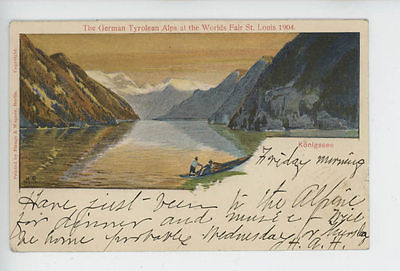 The German Tyrolean Alps at the Worlds Fair St. Louis 1904.
Copyright.
Königssee
Friday morning
Have just been to the Alpine
for dinner and music & will
be home probably Wednesday or Thursday
H.A.H.